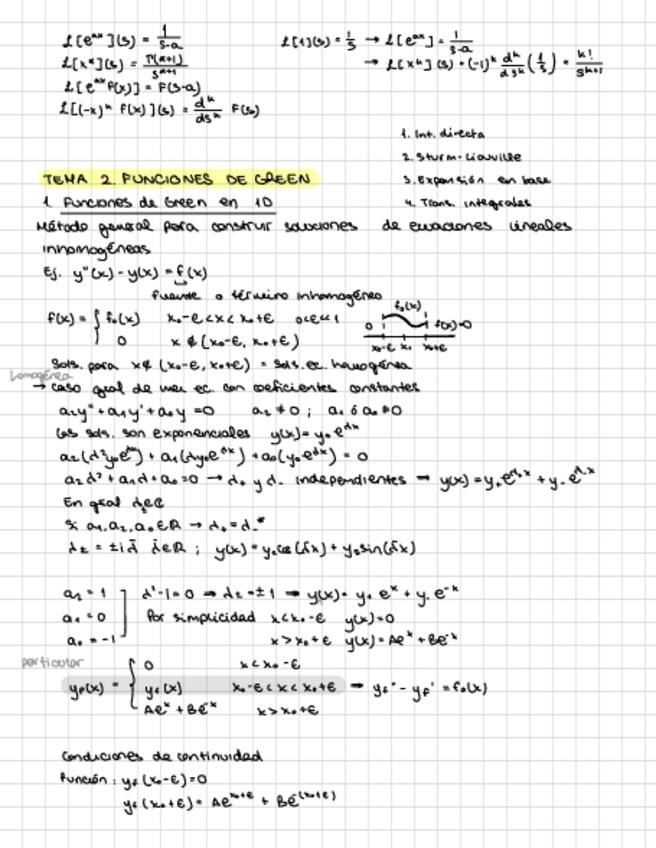 L[e^{ax}](s) = 1/(s-a)
L[x^α](s) = Γ(α+1)/s^{α+1}
L[e^{ax} f(x)] = F(s-a)
L[(-x)^k f(x)](s) = d^k/ds^k F(s)
L[1](s) = 1/s → L[e^{ax}] = 1/(s-a)
→ L[x^k](s) = (-1)^k d^k/ds^k (1/s) = k!/s^{k+1}
1. Int. directa
2. Sturm-Liouville
3. Expansión en base
4. Trans. integrales
TEMA 2. FUNCIONES DE GREEN
1. Funciones de Green en 1D
Método general para construir soluciones de ecuaciones lineales
inhomogéneas
Ej. y''(x) - y(x) = f(x)
fuente o término inhomogéneo
f(x) = { f₀(x) x₀-ε<x<x₀+ε 0<ε<<1
0 x ∉ (x₀-ε, x₀+ε)
f₀(x)
0 f(x)=0
x₀-ε x₀ x₀+ε
Sols. para x∉ (x₀-ε, x₀+ε) = sols. ec. homogénea
homogénea
→ caso gral de una ec. con coeficientes constantes
a₂y'' + a₁y' + a₀y = 0 a₂ ≠ 0 ; a₁ ó a₀ ≠ 0
Las sols. son exponenciales y(x) = y₀ e^{λx}
a₂(λ²y₀e^{λx}) + a₁(λy₀e^{λx}) + a₀(y₀e^{λx}) = 0
a₂λ² + a₁λ + a₀ = 0 → λ₊ y λ₋ independientes → y(x) = y₊e^{λ₊x} + y₋e^{λ₋x}
En gral λ∈ℂ
Si a₁, a₂, a₀ ∈ℝ → λ₊ = λ₋*
λ± = ±iλ̄ λ̄∈ℝ ; y(x) = y_c cos(λ̄x) + y_s sin(λ̄x)
a₂ = 1
a₁ = 0
a₀ = -1
λ²-1=0 → λ± = ±1 → y(x) = y₊ e^x + y₋ e^{-x}
Por simplicidad x<x₀-ε y(x)=0
x>x₀+ε y(x) = Ae^x + Be^{-x}
particular
y_p(x) = { 0 x<x₀-ε
y_ε(x) x₀-ε<x<x₀+ε → y_ε'' - y_p' = f₀(x)
Ae^x + Be^{-x} x>x₀+ε
Condiciones de continuidad
Función : y_ε(x₀-ε) = 0
y_ε(x₀+ε) = Ae^{x₀+ε} + Be^{-(x₀+ε)}